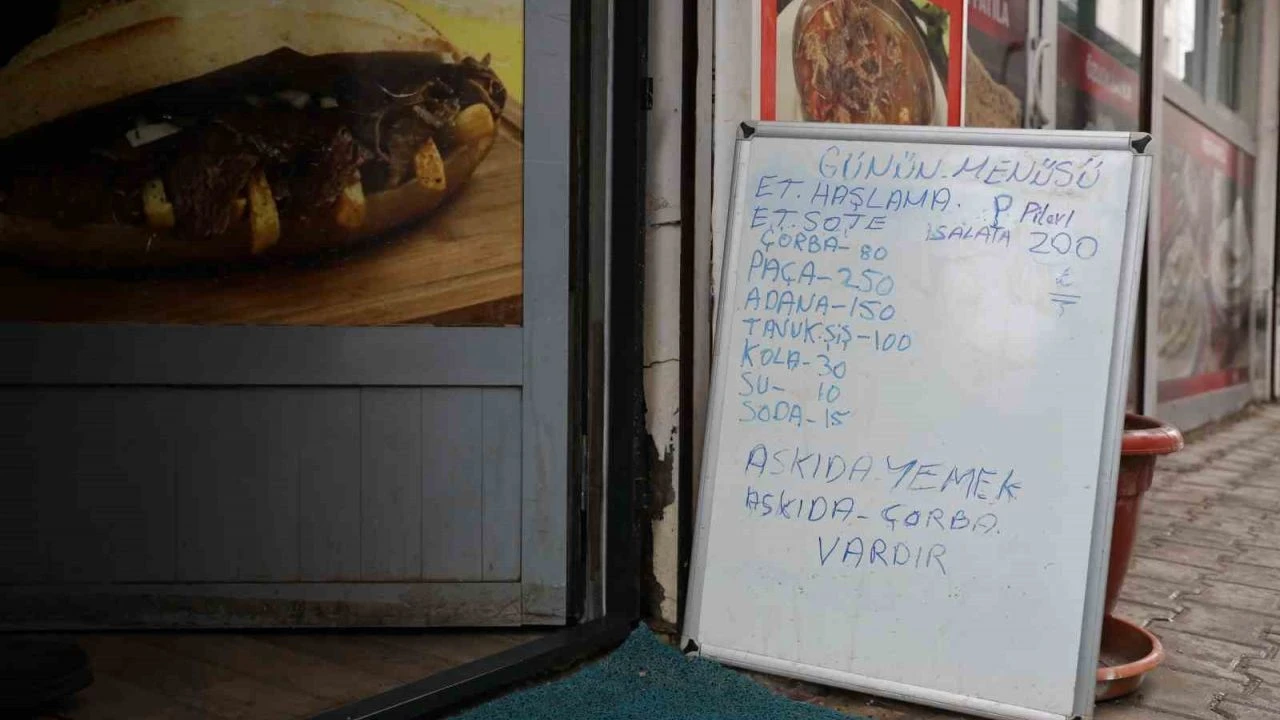 GÜNÜN-MENÜSÜ
ET. HAŞLAMA. P Pilavl
ET. SOTE SALATA 200
ÇORBA- 80
₺
PAÇA-250
ADANA-150
TAVUK.ŞİŞ-100
KOLA-30
SU- 10
SODA-15
ASKIDA-YEMEK
ASKIDA-ÇORBA.
VARDIR